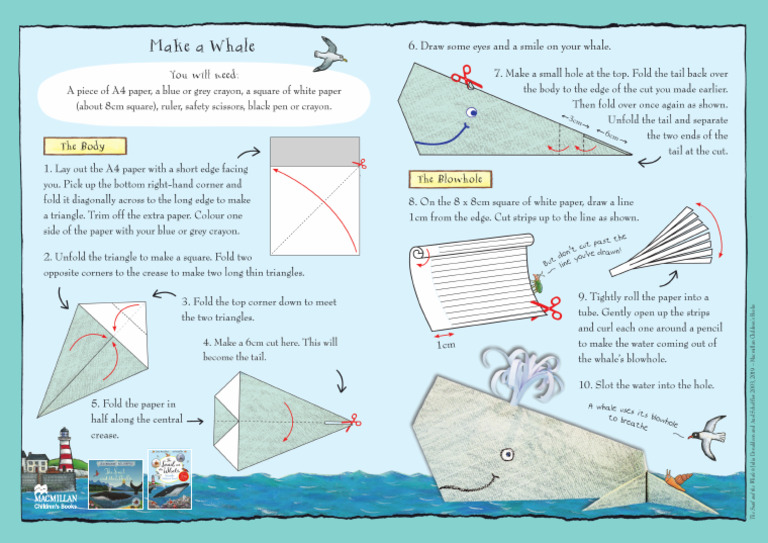 Make a Whale
You will need:
A piece of A4 paper, a blue or grey crayon, a square of white paper
(about 8cm square), ruler, safety scissors, black pen or crayon.
The Body
1. Lay out the A4 paper with a short edge facing
you. Pick up the bottom right-hand corner and
fold it diagonally across to the long edge to make
a triangle. Trim off the extra paper. Colour one
side of the paper with your blue or grey crayon.
2. Unfold the triangle to make a square. Fold two
opposite corners to the crease to make two long thin triangles.
3. Fold the top corner down to meet
the two triangles.
4. Make a 6cm cut here. This will
become the tail.
5. Fold the paper in
half along the central
crease.
MACMILLAN
Children's Books
6. Draw some eyes and a smile on your whale.
7. Make a small hole at the top. Fold the tail back over
the body to the edge of the cut you made earlier.
Then fold over once again as shown.
Unfold the tail and separate
the two ends of the
tail at the cut.
3cm
6cm
The Blowhole
8. On the 8 x 8cm square of white paper, draw a line
1cm from the edge. Cut strips up to the line as shown.
But don't cut past the
line you've drawn!
1cm
9. Tightly roll the paper into a
tube. Gently open up the strips
and curl each one around a pencil
to make the water coming out of
the whale's blowhole.
10. Slot the water into the hole.
A whale uses its blowhole
to breathe